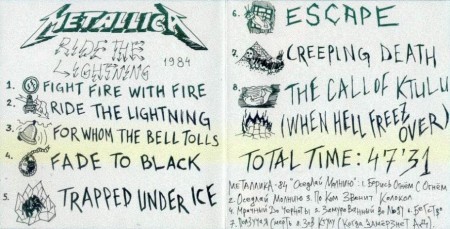 METALLICA
RIDE THE
LIGHTNING 1984
1. FIGHT FIRE WITH FIRE
2. RIDE THE LIGHTNING
3. FOR WHOM THE BELL TOLLS
4. FADE TO BLACK
5. TRAPPED UNDER ICE
6. ESCAPE
7. CREEPING DEATH
8. THE CALL OF KTULU
(WHEN HELL FREEZ
OVER)
TOTAL TIME: 47'31
МЕТАЛЛИКА-84 "Оседлай Молнию": 1. Борись Огнём с Огнём
2. Оседлай Молнию 3. По Ком Звонит Колокол
4. Мрачный До Черноты 5. Замурованный во Льду 6. Бегство
7. Ползучая Смерть 8. Зов Ктулу (Когда Замёрзнет Ад).